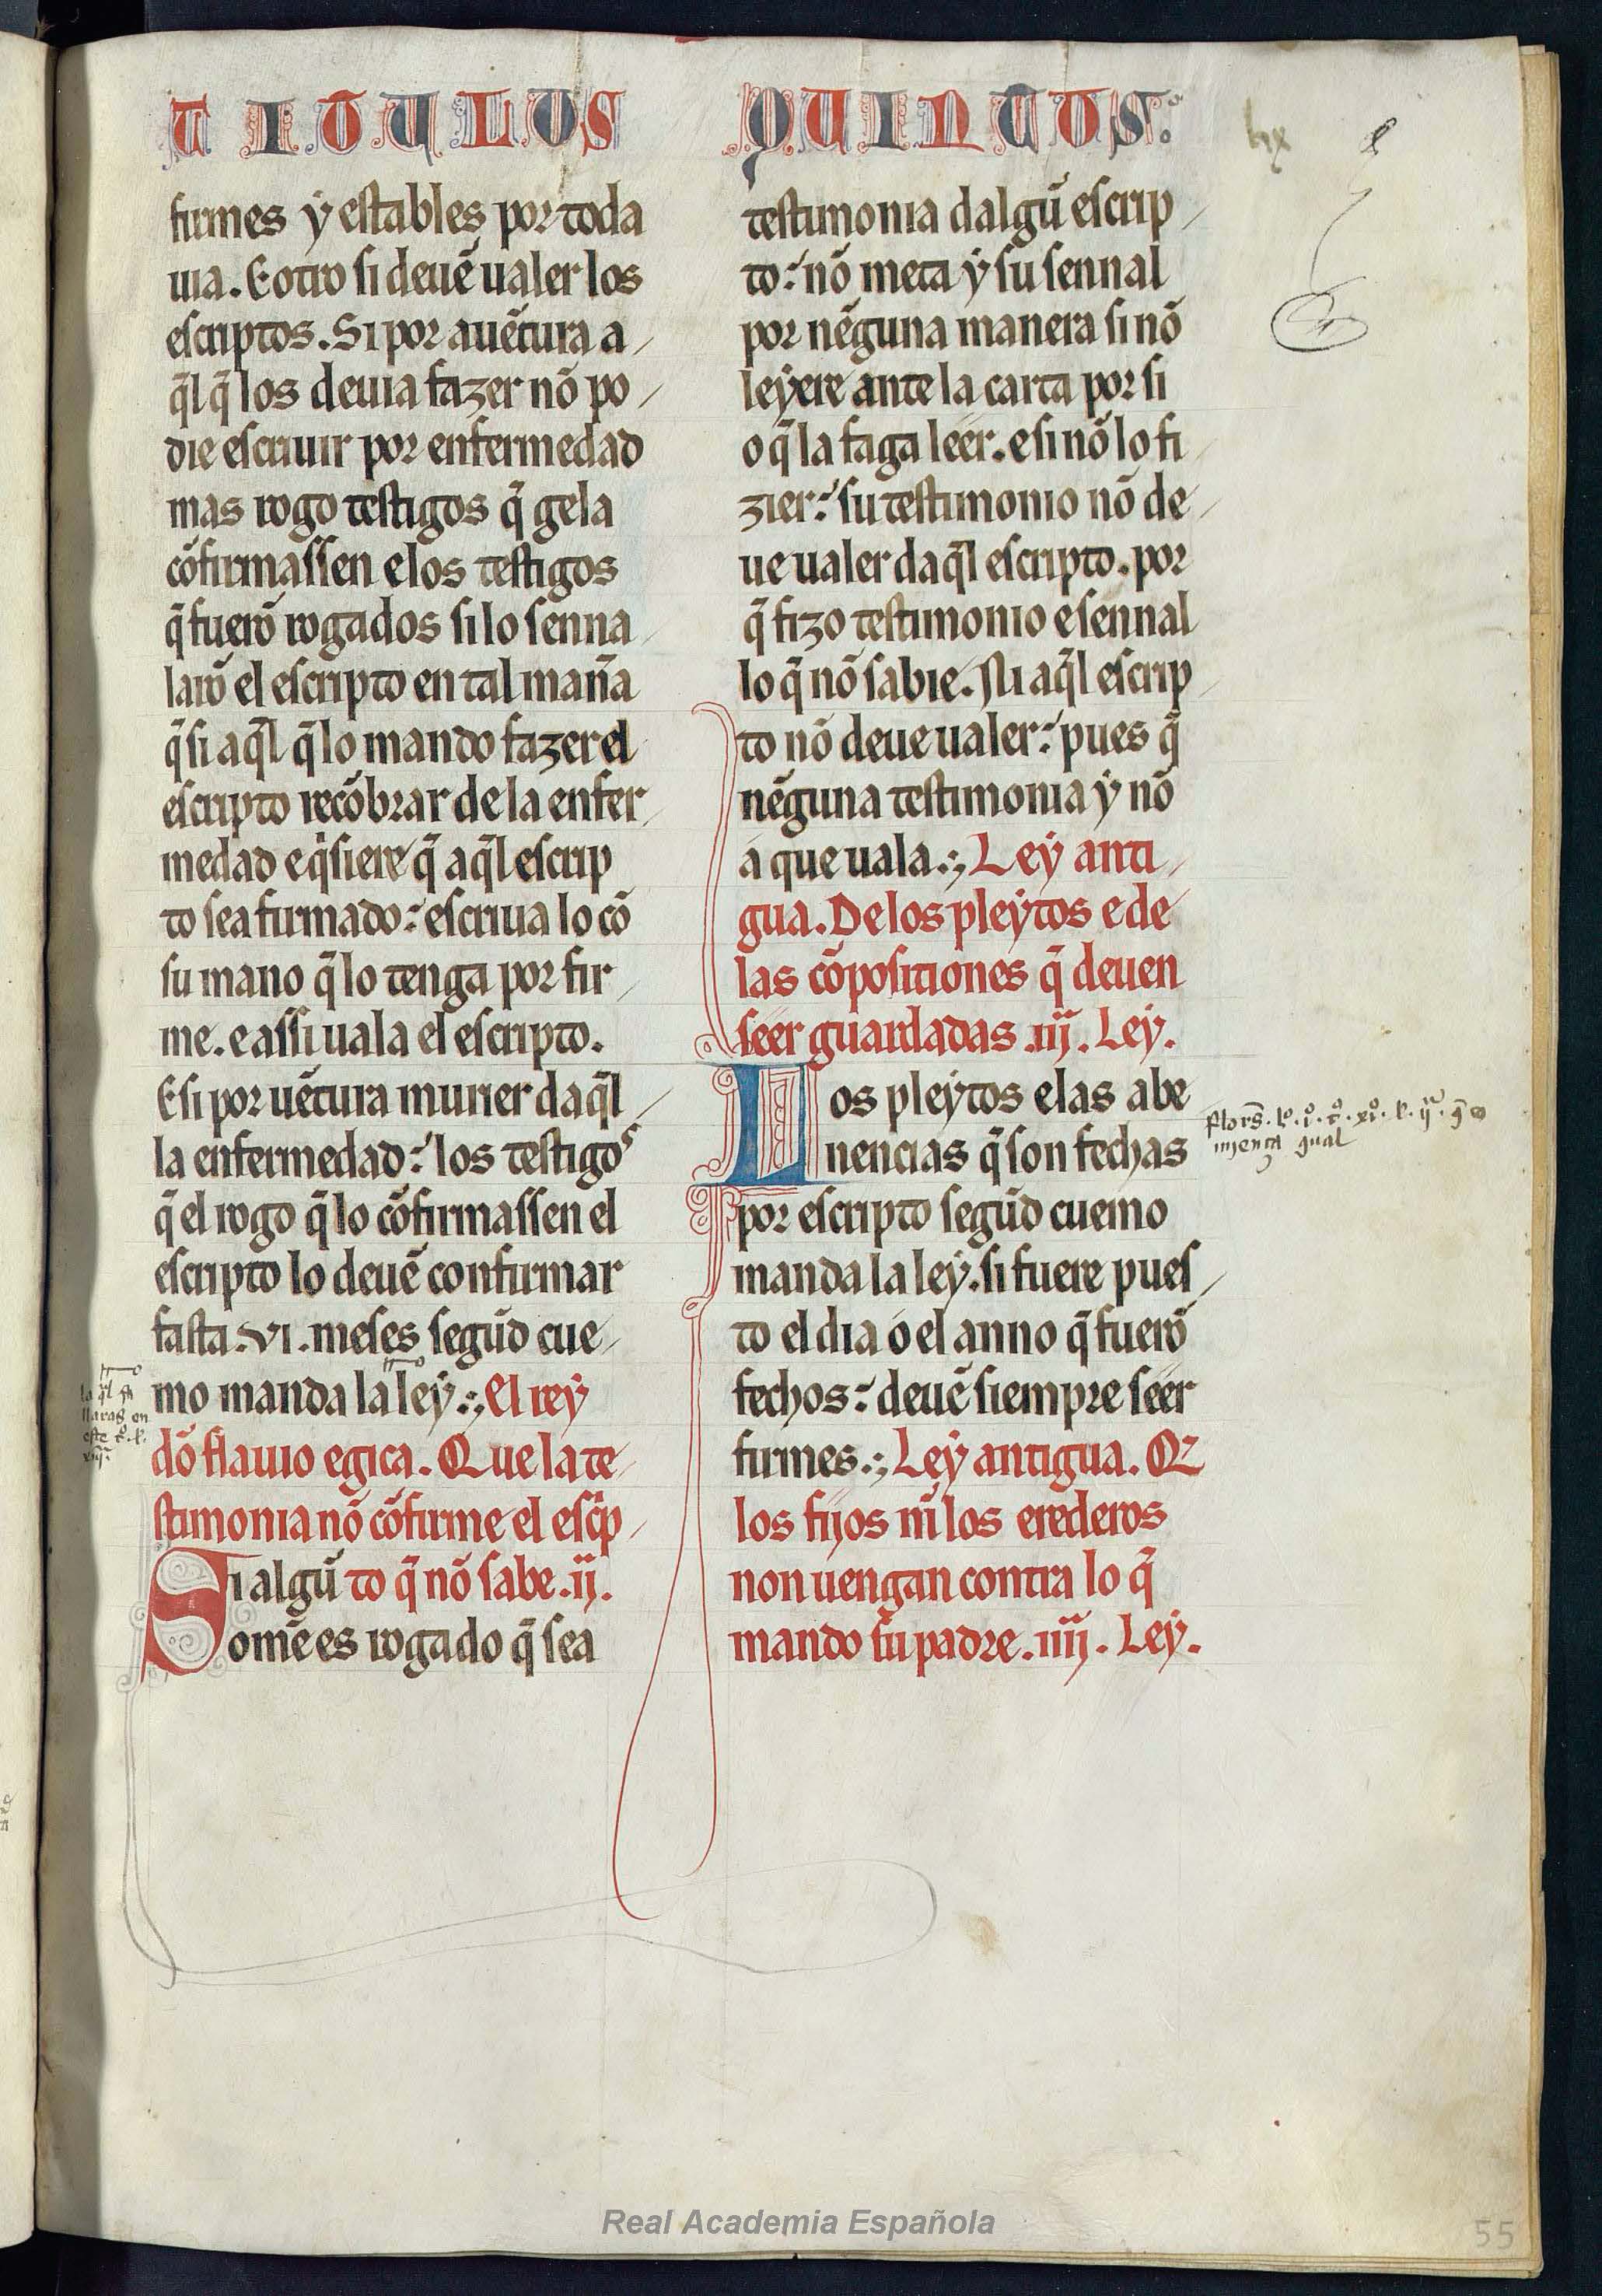 TITULUS QUINTUS.
firmes ẏ estables por toda
uia. E otro si deuẽ ualer los
escriptos. Si por auẽtura a
q̃l q̃ los deuia fazer nõ po
die escriuir por enfermedad
mas rogo testigos q̃ gela
cõfirmassen e los testigos
q̃ fuerõ rogados si lo senna
larõ el escripto en tal maña
q̃ si aq̃l q̃ lo mando fazer el
escripto recõbrar de la enfer
medad e q̃siere q̃ aq̃l escrip
to sea firmado: escriua lo cõ
su mano q̃ lo tenga por fir
me. e assi uala el escripto.
E si por uẽtura murier daq̃l
la enfermedad: los testigos
q̃ el rogo q̃ lo cõfirmassen el
escripto lo deuẽ confirmar
fasta .VI. meses segũd cue
mo manda la leẏ.; El rey
dõ flauio egica. Que la te
stimonia nõ cõfirme el esc̃p
Si algũ to q̃ nõ sabe .ij.
omẽ es rogado q̃ sea
testimonia dalgũ escrip
to: nõ meta ẏ su sennal
por nẽguna manera si nõ
leẏere ante la carta por si
o q̃ la faga leer. e si nõ lo fi
zier: su testimonio nõ de
ue ualer daq̃l escripto. por
q̃ fizo testimonio e sennal
lo q̃ nõ sabie. Ni aq̃l escrip
to nõ deue ualer: pues q̃
nẽguna testimonia ẏ nõ
a que uala.; Leẏ anti
gua. De los pleẏtos e de
las cõpositiones q̃ deuen
seer guardadas .iij. Leẏ.
Los pleẏtos e las abe
nencias q̃ son fechas
por escripto segũd cuemo
manda la leẏ. si fuere pues
to el dia o el anno q̃ fuerõ
fechos: deuẽ siempre seer
firmes.; Leẏ antigua. Q̃
los fijos nĩ los erederos
non uengan contra lo q̃
mando su padre .iiij. Leẏ.
Real Academia Española
55